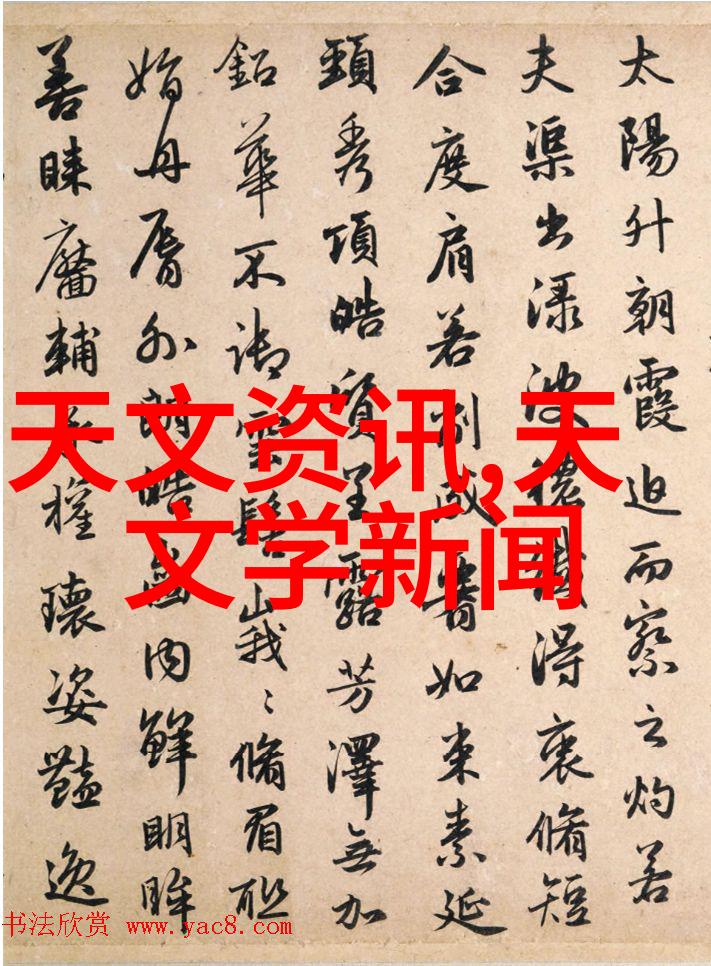 太陽升朝霞迫而察之灼若
夫渠出渌波穠纖得衷脩短
合度肩若削成如束素延
頸秀項皓質呈露芳澤無加
鉛華不御雲髻峩〻脩眉聯
娟丹脣外朗皓齒内鮮明眸
善睞靨輔承權瓌姿豔逸
天文资讯,天
文学新闻
书法欣赏 www.yac8.com